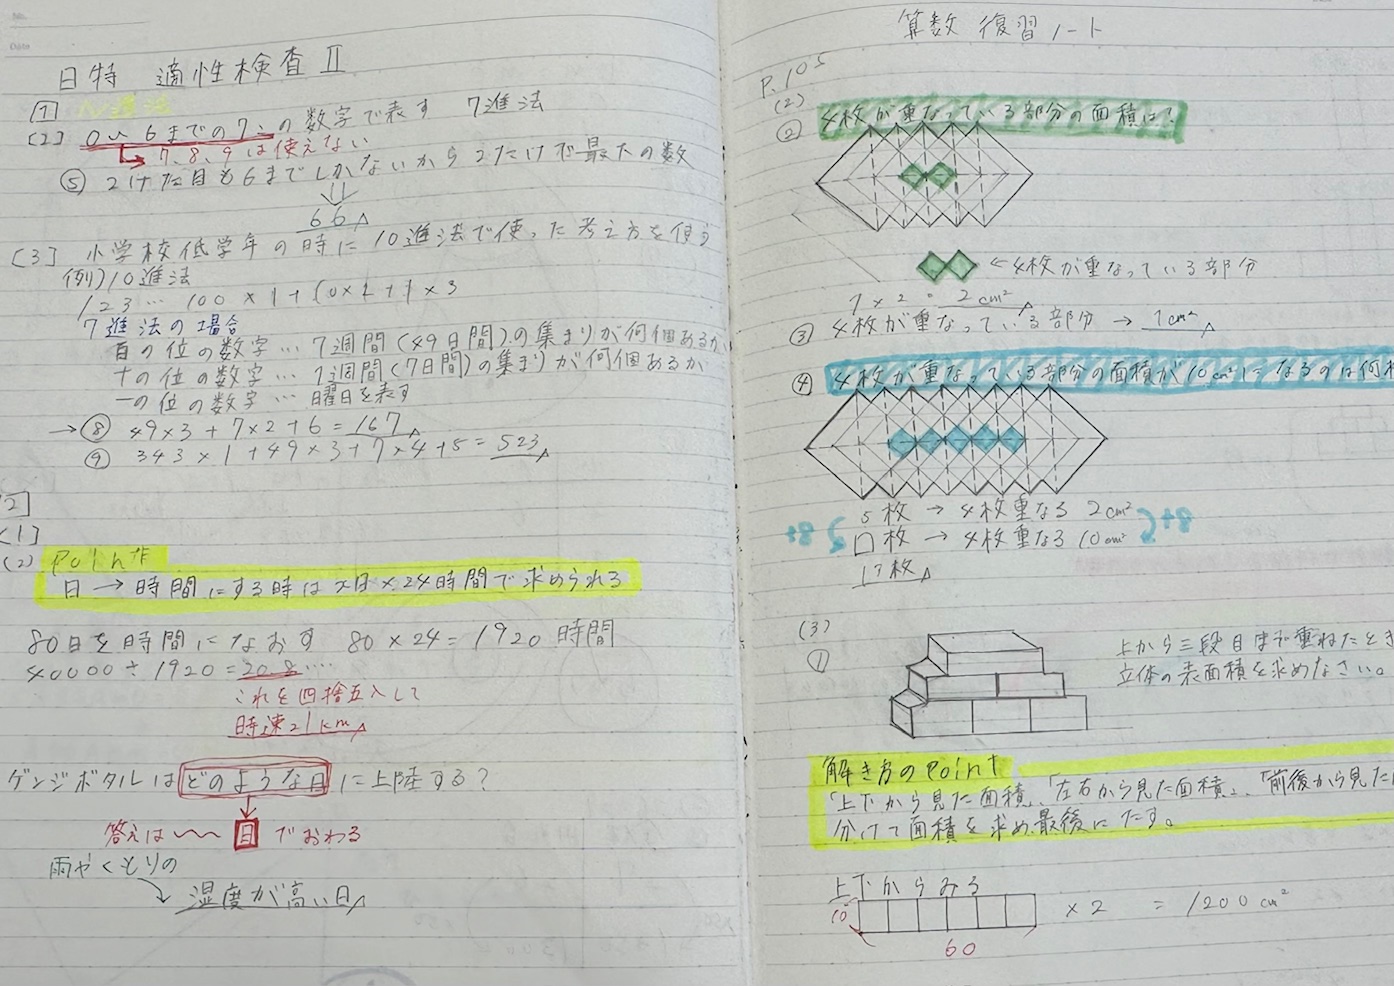 日特 適性検査Ⅱ
[1] N進法
(2) 0〜6までの7この数字で表す 7進法
→7、8、9は使えない
⑤ 2けた目も6までしかないから2けたで最大の数
⇓
66
(3) 小学校低学年の時に10進法で使った考え方を使う
例)10進法
123… 100×1+10×2+1×3
7進法の場合
百の位の数字… 7週間(49日間)の集まりが何個あるか
十の位の数字… 1週間(7日間)の集まりが何個あるか
一の位の数字… 曜日を表す
→⑧ 49×3+7×2+6=167
⑨ 343×1+49×3+7×4+5=523
2]
(1]
(2) point
日→時間にする時は×日×24時間で求められる
80日を時間になおす 80×24=1920時間
40000÷1920=20.8…
これを四捨五入して
時速21km
ゲンジボタルはどのような日に上陸する?
答えは〜〜日でおわる
雨やくもりの
→湿度が高い日
算数 復習ノート
P.105
(2)
② 4枚が重なっている部分の面積は?
←4枚が重なっている部分
1×2=2cm²
③ 4枚が重なっている部分→1cm²
④ 4枚が重なっている部分の面積が10cm²になるのは何枚
5枚→4枚重なる 2cm²
8+ □枚→4枚重なる 10cm² +8
13枚
(3)
① 上から三段目まで重ねたとき
立体の表面積を求めなさい。
解き方のpoint
「上下から見た面積」、「左右から見た面積」、「前後から見た
分けて面積を求め、最後にたす。
上下からみる
10 ×2 =1200cm²
60